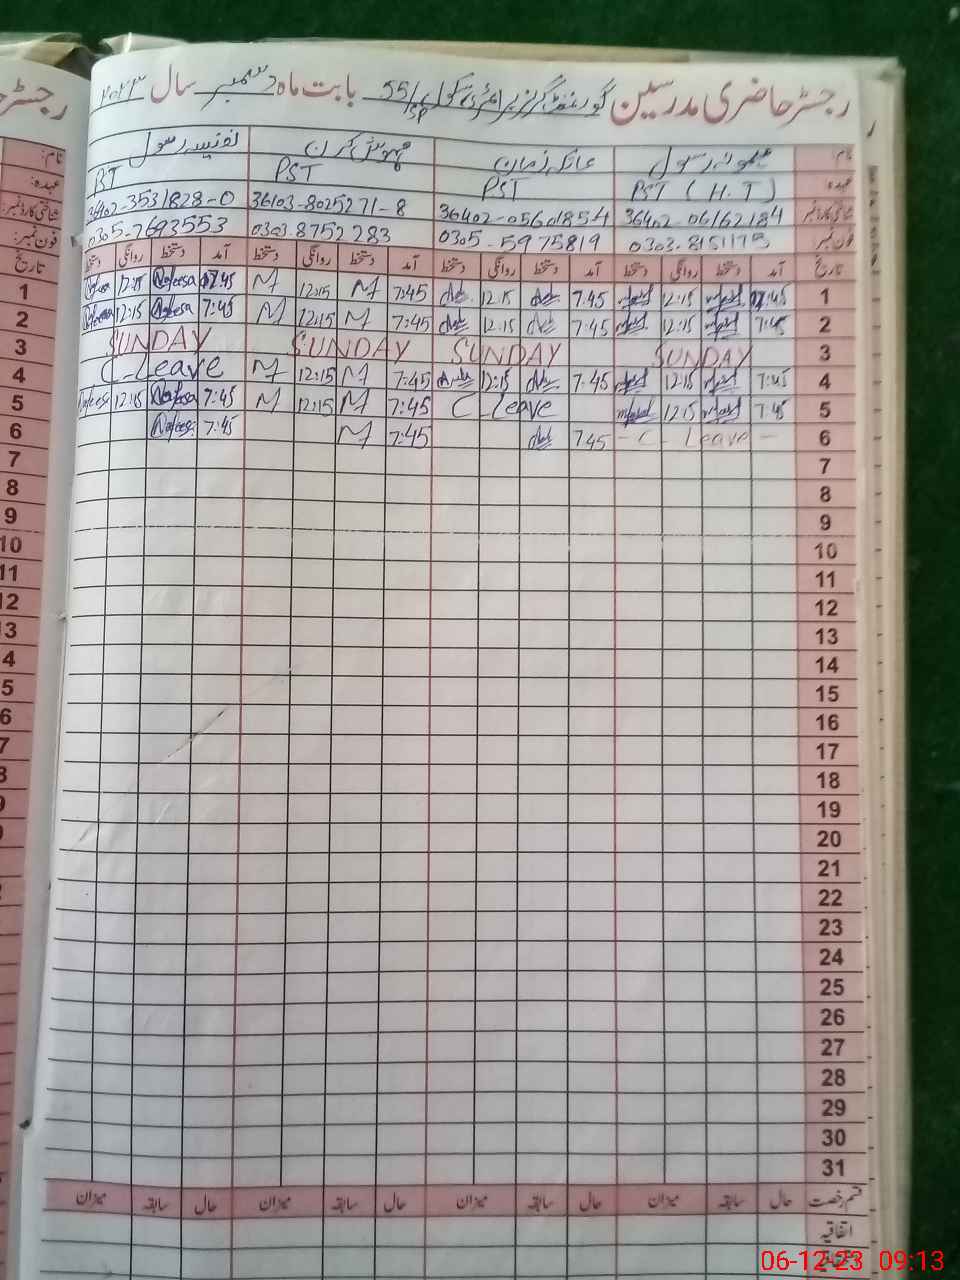 رجسٹر حاضری مدرسین گورنمنٹ گرلز پرائمری سکول 55/SP بابت ماہ دسمبر سال ۲۰۲۳
نام: میمونہ رسول عاتکہ زمان مہوش کرن نفیسہ رسول
عہدہ: PST (H.T) PST PST PST
شناختی کارڈ نمبر: 36402-05601854 36103-8025271-8 36402-3531828-0
فون نمبر: 0305-5975819 0303-8752283 0305-7693553
تاریخ آمد دستخط روانگی دستخط آمد دستخط روانگی دستخط آمد دستخط روانگی دستخط آمد دستخط روانگی دستخط
1 7:45 12:15 7:45 12:15 7:45 M 12:15 M 7:45 Nafeesa 12:15
2 7:45 12:15 7:45 12:15 7:45 M 12:15 M 7:45 Nafeesa 12:15 Nafeesa
3 SUNDAY SUNDAY SUNDAY SUNDAY
4 7:45 12:15 7:45 12:15 7:45 M 12:15 M C-Leave
5 7:45 12:15 C-Leave 7:45 M 12:15 M 7:45 Nafeesa 12:15 Nafeesa
6 - C - Leave - 7:45 7:45 M 7:45 Nafeesa
7
8
9
10
11
12
13
14
15
16
17
18
19
20
21
22
23
24
25
26
27
28
29
30
31
قسم رخصت حال سابقہ میزان حال سابقہ میزان حال سابقہ میزان حال سابقہ میزان
اتفاقیہ
06-12-23 09:13